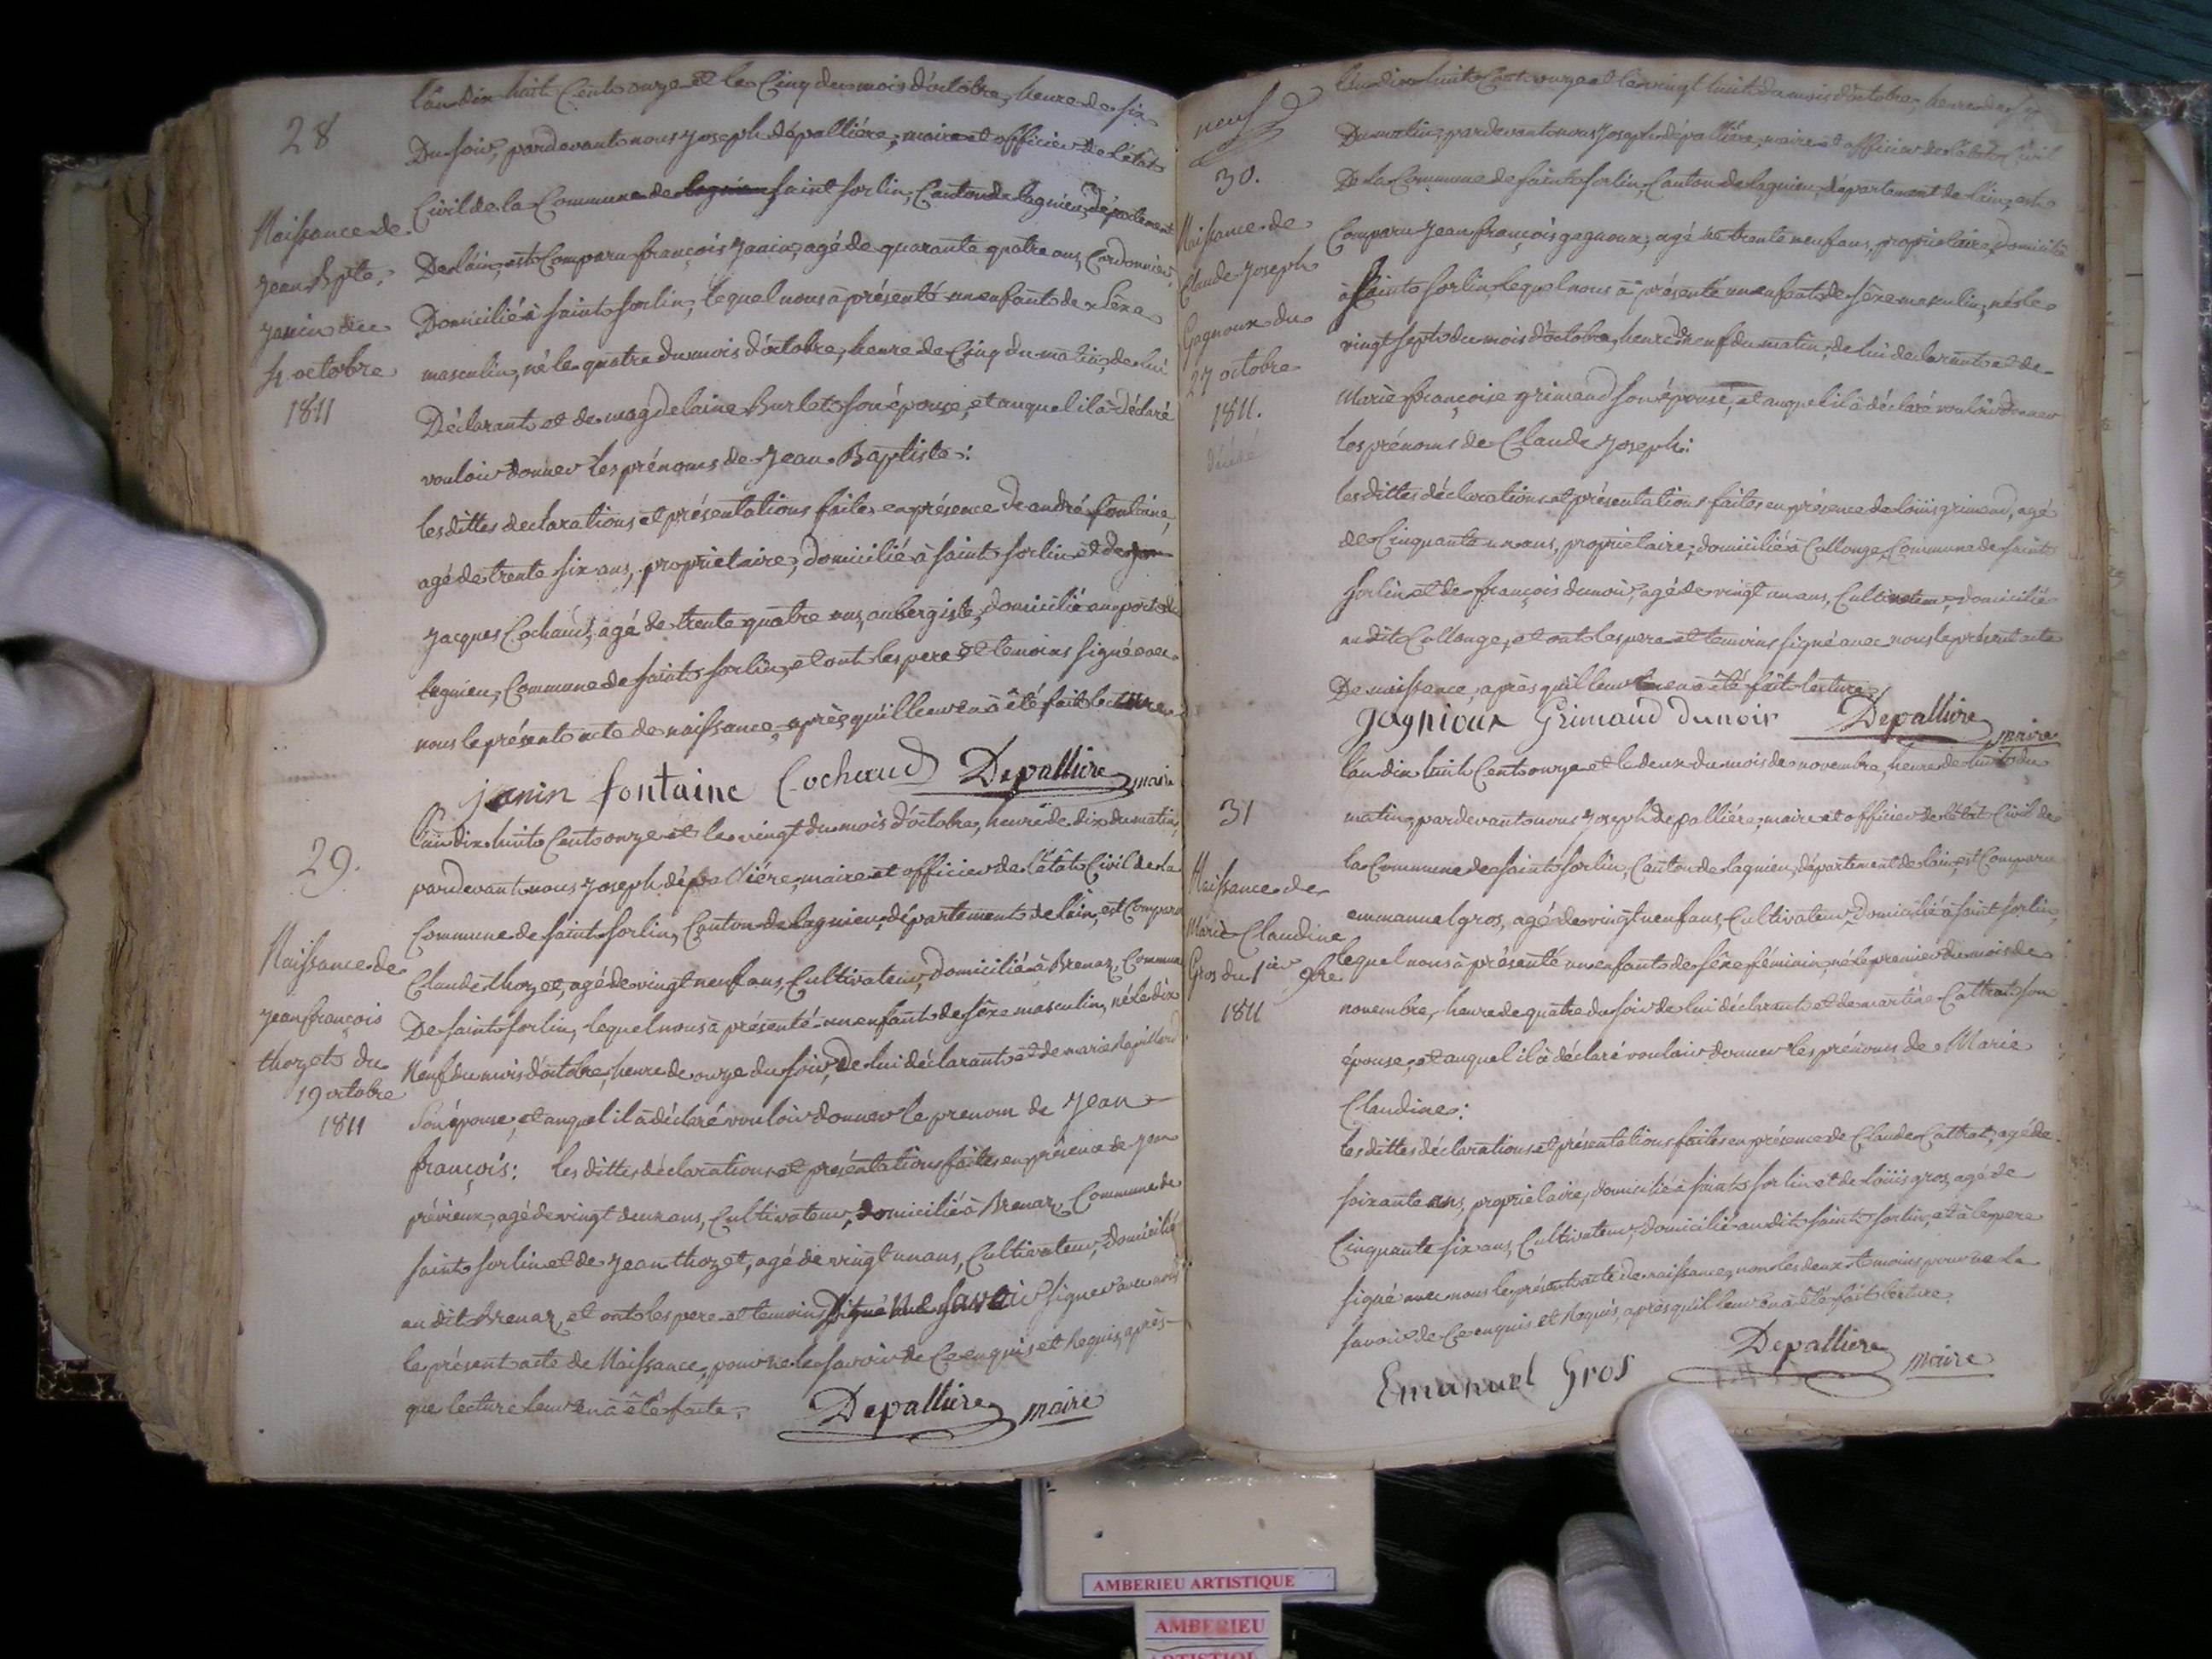 28
Naissance de
Jean Bpte
Janin du
4 octobre
1811
l'an dix huit Cents onze et le Cinq du mois d'octobre, heure de six
Du soir, pardevant nous Joseph dépalliére, maire et officier de l'état
Civil de la Commune de lagnieu saint sorlin, Canton de lagnieu, département
De l'ain, est Comparu françois Janin, agé de quarante quatre ans, Cordonnier
Domicilié à saint sorlin, lequel nous à présenté un enfant de Sexe
masculin, né le quatre du mois d'octobre, heure de Cinq du matin, de lui
Déclarant et de magdelaine Burlet son épouse, et auquel il à déclaré
vouloir donner les prénoms de Jean Baptiste:
les dittes declarations et présentations faites en présence de andré fontaine,
agé de trente six ans, propriétaire, domicilié à saint sorlin et de
Jacques Cochaud, agé de trente quatre ans, aubergiste, domicilié au port de
lagnieu, Commune de saint sorlin, et ont les pere et temoins signé avec
nous le présent acte de naissance, après qu'il leur en à été fait lecture
janin fontaine Cochaud Depalliere maire
29.
Naissance de
Jean françois
thozet du
19 octobre
1811
l'an dix huit Cents onze et le vingt du mois d'octobre, heure de dix du matin,
pardevant nous Joseph dépalliére, maire et officier de l'état Civil de la
Commune de saint sorlin, Canton de lagnieu, département de l'ain, est Comparu
Claude thozet, agé de vingt neuf ans, Cultivateur, domicilié à Brenaz, Commune
De saint sorlin, lequel nous à présenté un enfant de sexe masculin, né le dix
Neuf du mois d'octobre, heure de onze du soir, de lui déclarant et de marie
Son épouse, et auquel il à déclaré vouloir donner le prenom de Jean
françois: les dittes déclarations et présentations faites en présence de Jean
prévieux, agé de vingt deux ans, Cultivateur, domicilié à Brenaz, Commune de
saint sorlin et de Jean thozet, agé de vingt un ans, Cultivateur, domicilié
au dit Brenaz, et ont les pere et temoins ne savoir signer avec nous
le présent acte de Naissance, pour ne le savoir de Ce enquis et Requis, après
que lecture leur en à été faite.
Depalliere maire
neuf
30.
Naissance de
Claude Joseph
Gagnoux du
27 octobre
1811.
décédé
l'an dix huit Cents onze et le vingt huit du mois d'octobre, heure de
Du matin, pardevant nous Joseph dépalliére, maire et officier de l'état Civil
De la Commune de saint sorlin, Canton de lagnieu, département de l'ain, est
Comparu Jean françois gagnoux, agé de trente neuf ans, propriétaire, domicilié
à saint sorlin, lequel nous à présenté un enfant de sexe masculin, né le
vingt sept du mois d'octobre, heure de neuf du matin, de lui declarant et de
Marie françoise grimaud son épouse, et auquel il à déclaré vouloir donner
les prénoms de Claude Joseph:
les dittes déclarations et présentations faites en présence de loüis grimaud, agé
de Cinquante un ans, propriétaire, domicilié à Collonge, Commune de saint
Sorlin et de françois dunoir, agé de vingt un ans, Cultivateur, domicilié
au dit Collonge, et ont les pere et temoins signé avec nous le présent acte
De naissance, après qu'il leur en à été fait lecture
Jagnioux Grimaud Dunoir Depalliere maire
31
Naissance de
Marie Claudine
Gros du 1ier 9bre
1811
l'an dix huit Cents onze et le deux du mois de novembre, heure de huit du
matin, pardevant nous Joseph depalliére, maire et officier de l'état Civil de
la Commune de saint sorlin, Canton de lagnieu, département de l'ain, est Comparu
emmanuel gros, agé de vingt neuf ans, Cultivateur, domicilié à saint sorlin,
lequel nous à présenté un enfant de sexe féminin, né le premier du mois de
novembre, heure de quatre du soir de lui déclarant et de martine Cattrat son
épouse, et auquel il à déclaré vouloir donner les prénoms de Marie
Claudine:
les dittes déclarations et présentations faites en présence de Claude Cattrat, agé de
soixante ans, propriétaire, domicilié à saint sorlin et de loüis gros, agé de
Cinquante six ans, Cultivateur, domicilié au dit saint sorlin, et à le pere
signé avec nous le présent acte de naissance, non les deux temoins pour ne la
savoir de Ce enquis et Requis, après qu'il leur en à été fait lecture.
Emanuel Gros Depalliere maire
AMBERIEU ARTISTIQUE
AMBERIEU
ARTISTIQUE